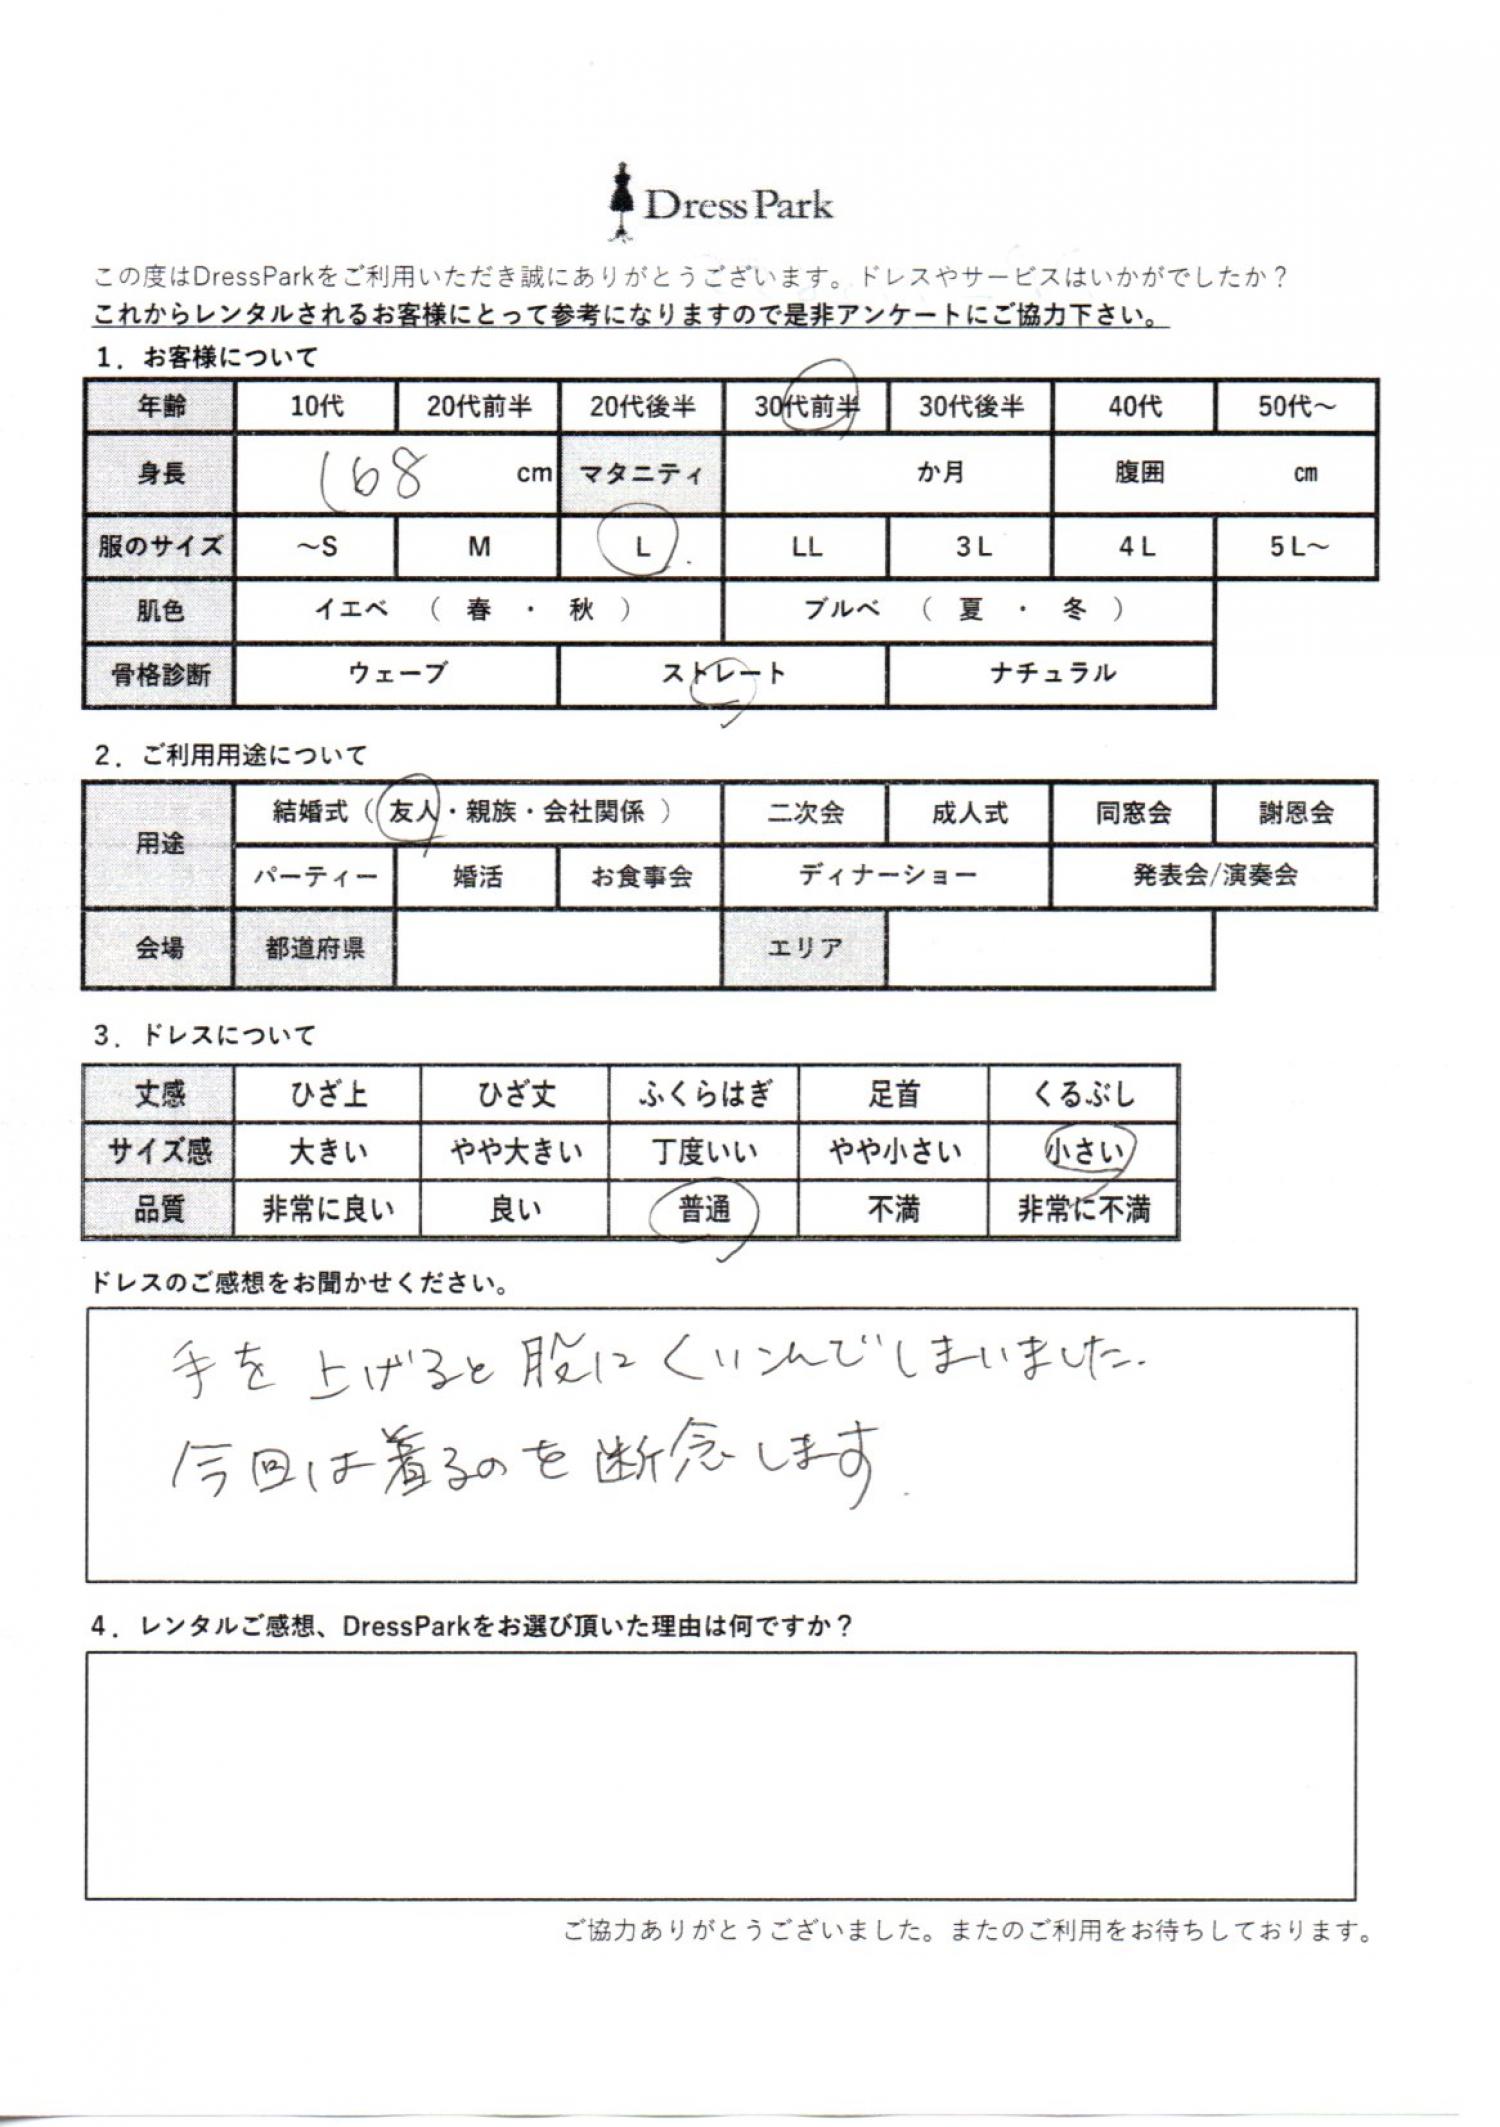 Dress Park
この度はDressParkをご利用いただき誠にありがとうございます。ドレスやサービスはいかがでしたか？
これからレンタルされるお客様にとって参考になりますので是非アンケートにご協力下さい。
1．お客様について
年齢 10代 20代前半 20代後半 30代前半 30代後半 40代 50代～
身長 168 cm マタニティ か月 腹囲 ㎝
服のサイズ ～S M L LL 3L 4L 5L～
肌色 イエベ （ 春 ・ 秋 ） ブルべ （ 夏 ・ 冬 ）
骨格診断 ウェーブ ストレート ナチュラル
2．ご利用用途について
用途 結婚式（ 友人・親族・会社関係 ） 二次会 成人式 同窓会 謝恩会
パーティー 婚活 お食事会 ディナーショー 発表会/演奏会
会場 都道府県 エリア
3．ドレスについて
丈感 ひざ上 ひざ丈 ふくらはぎ 足首 くるぶし
サイズ感 大きい やや大きい 丁度いい やや小さい 小さい
品質 非常に良い 良い 普通 不満 非常に不満
ドレスのご感想をお聞かせください。
手を上げると股にくいこんでしまいました.
今回は着るのを断念します.
4．レンタルご感想、DressParkをお選び頂いた理由は何ですか？
ご協力ありがとうございました。またのご利用をお待ちしております。